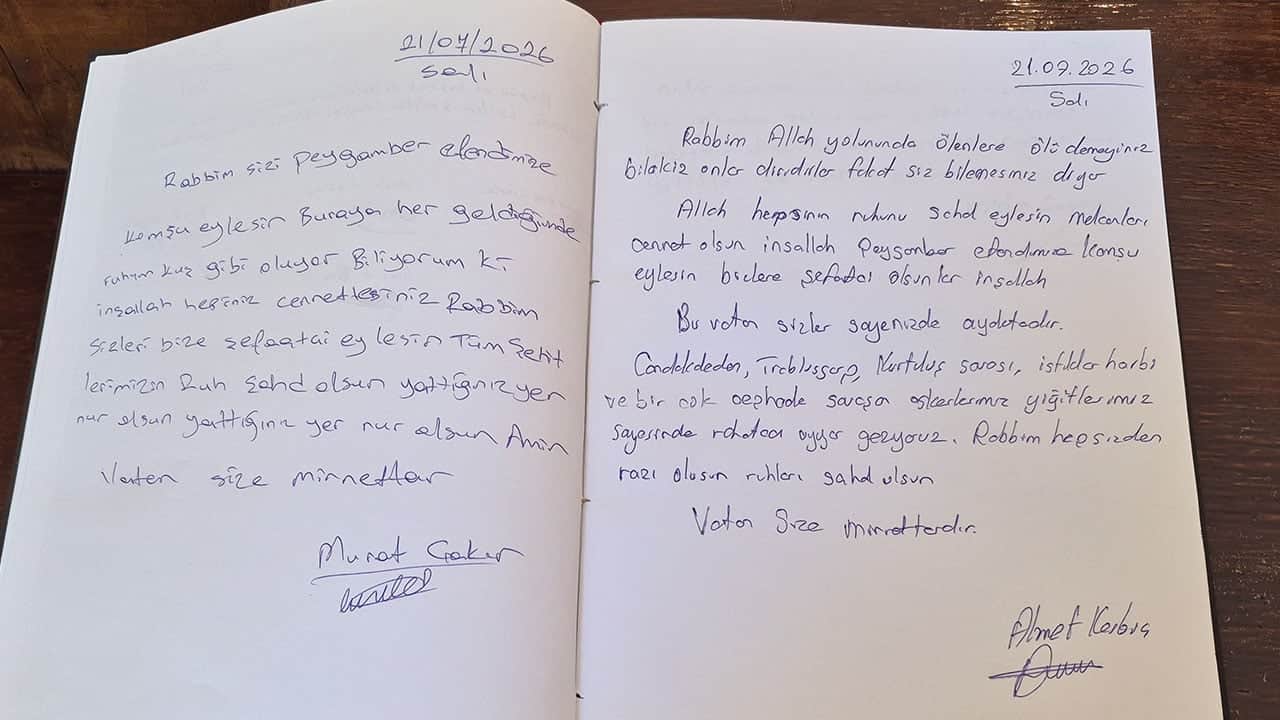 21/07/2026
Salı
Rabbim sizi Peygamber efendimize
Komşu eylesin Buraya her geldiğimde
ruhum kuş gibi oluyor Biliyorum ki
inşallah hepiniz cennetlesiniz Rabbim
sizleri bize şefaatai eylesin Tüm Şehit
lerimizin Ruh şahd olsun yattığınız yer
nur olsun yattığınız yer nur olsun Amin
Vatan size minnettar
Murat
21.07.2026
Salı
Rabbim Allah yolununda ölenlere ölü demeyiniz
bilakiz onlar diridirler fakat siz bilemesiniz diyor
Allah hepsinin ruhunu sahd eylesin mekanları
cennet olsun insallah Peygamber efendimize Komsu
eylesin bizlere şefadai olsunlar inşallah
Bu vatan sizler sayenizde ayaktadır.
Canakkaleden, Trablusgarp, Kurtuluş savası, istiklar harbi
ve bir cok cephade savaşa askerlerimiz yiğitlerimiz
sayesinde rahatca geziyouz. Rabbim hepsizden
razı olusun ruhları sahd olsun
Vatan Size minnettardır.
Ahmet